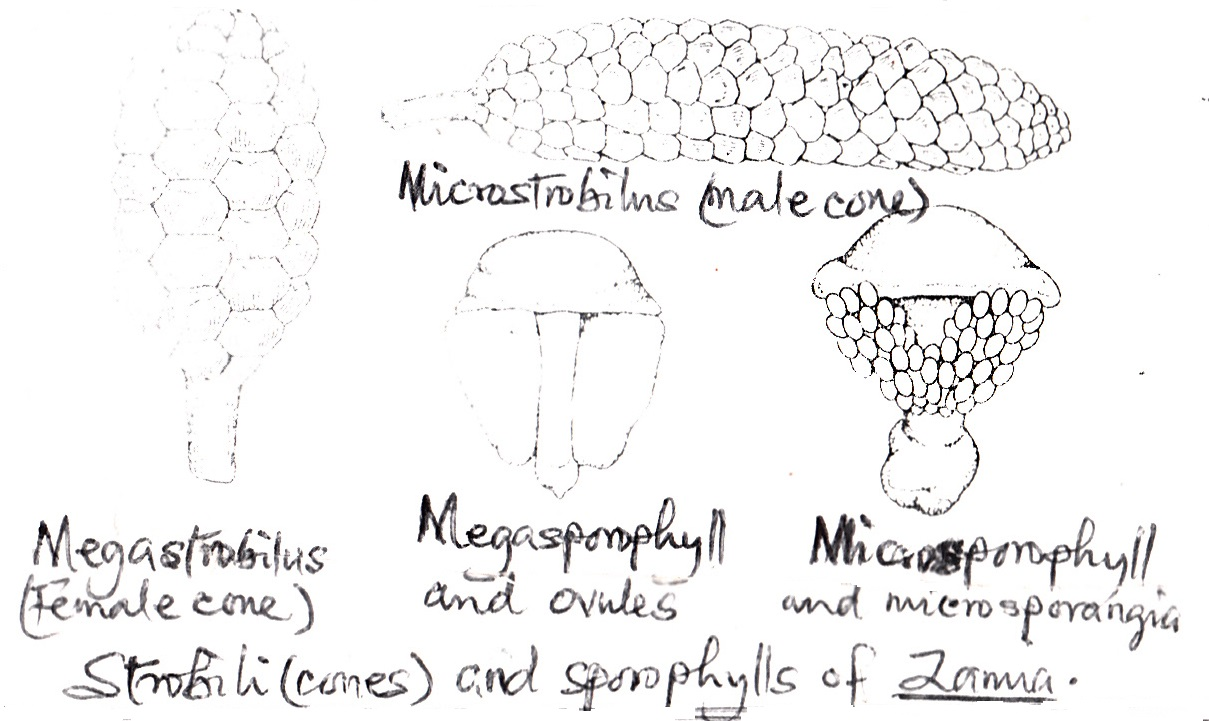 Microstrobilus (male cone)
Megastrobilus
(Female cone)
Megasporophyll
and ovules
Microsporophyll
and microsporangia
Strobili (cones) and sporophylls of Zamia.